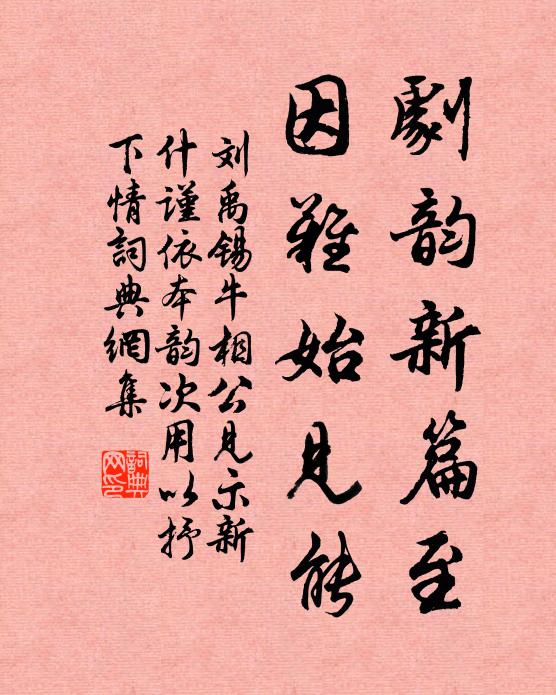 劇韵新篇至
因難始見能
刘禹锡牛相公见示新
什谨依本韵次用以抒
下情詞典網集
詞典网印